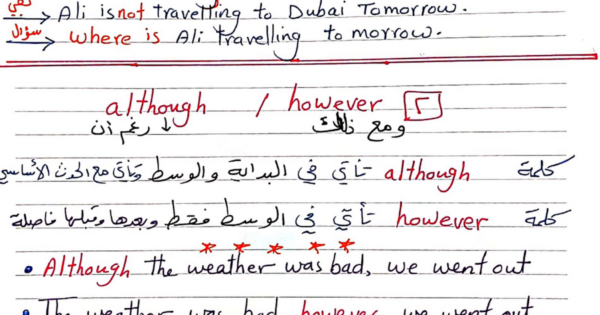 نفي → Ali is not travelling to Dubai Tomorrow.
سؤال → Where is Ali Travelling to morrow.
although / however [٢]
رغم أن ↓ ومع ذلك
كلمة although تأتي في البداية والوسط وتأتي مع الحدث الأساسي
كلمة however تأتي في الوسط فقط وبعدها وقبلها فاصلة
• Although the weather was bad, we went out
• The weather was bad, however, we went out